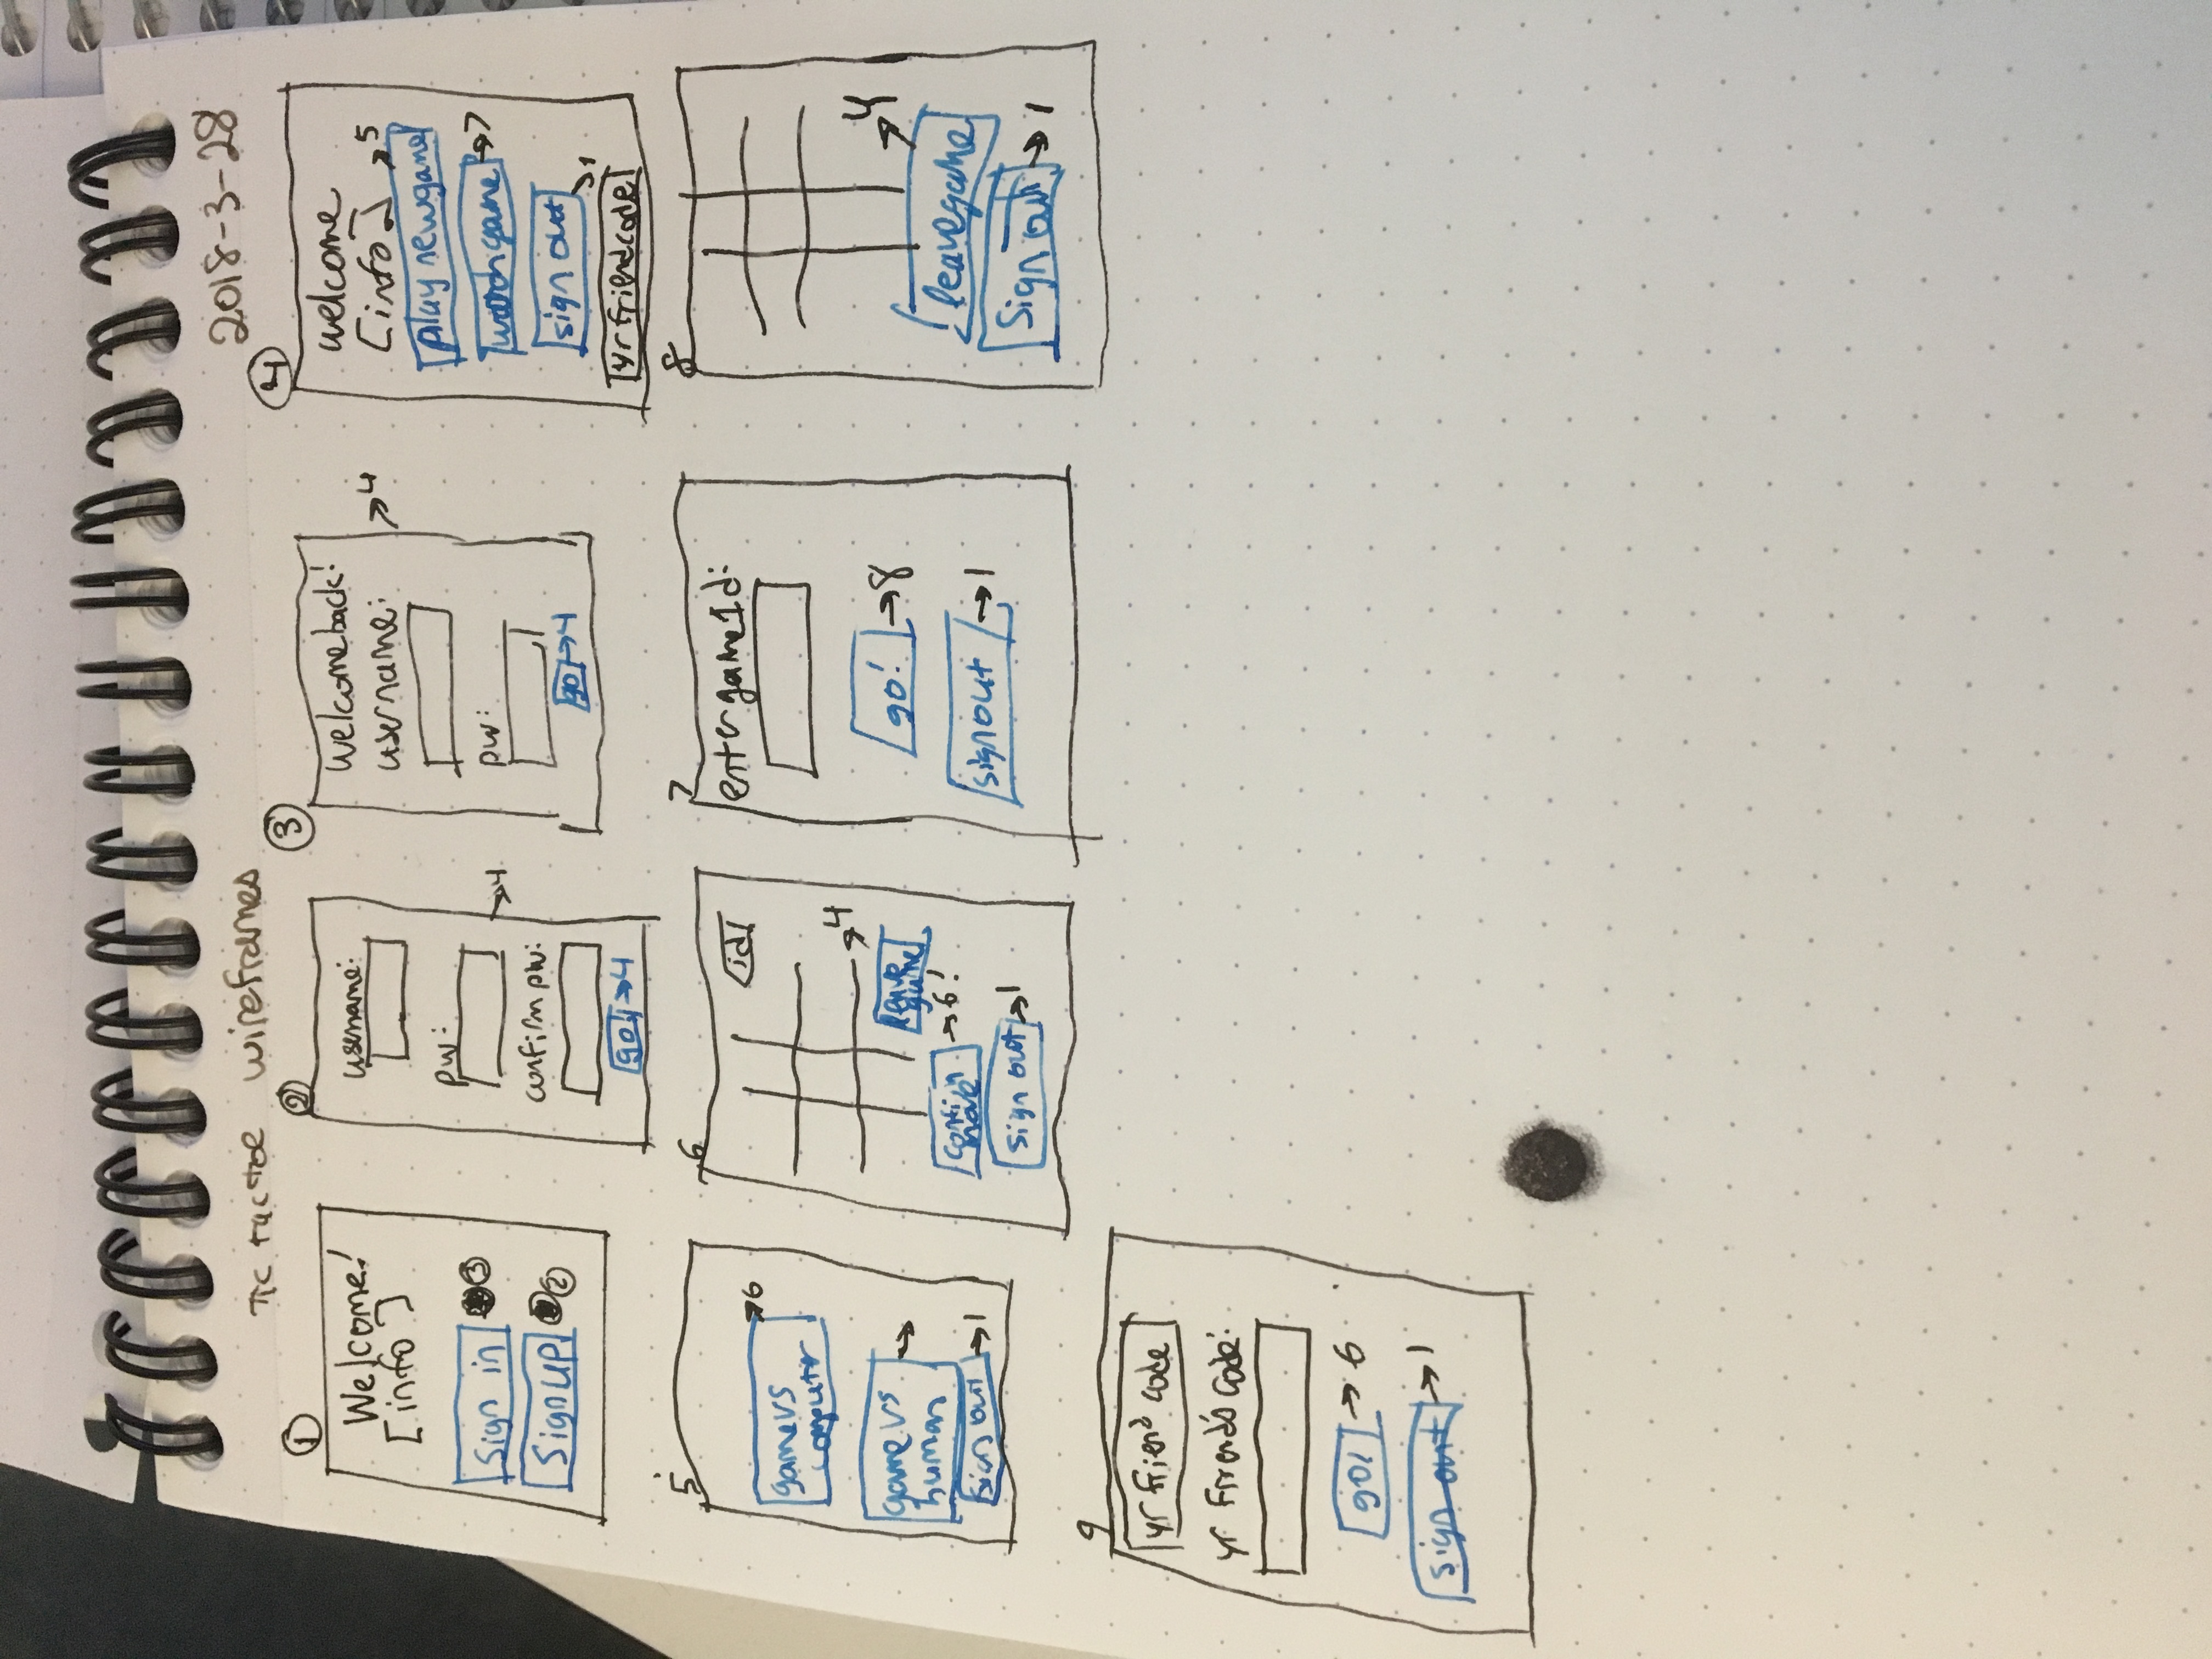 Tic tac toe wireframes
2018-3-28
1
Welcome!
[info]
Sign in 3
Sign up 2
2
username:
pw:
→4
confirm pw:
go! →4
3
Welcome back!
→4
username:
pw:
go →4
4
welcome
[info] →5
play new game
watch game →7
sign out
→1
yr friend code
5
→6
game vs
computer
game vs
human →
sign out →1
6
id
→4
leave
game
confirm
move →6!
sign out →1
7
enter game Id:
go! →8
sign out →1
8
→4
leave game
Sign out →1
9
yr friend code
yr friend's code:
go! →6
sign out →1